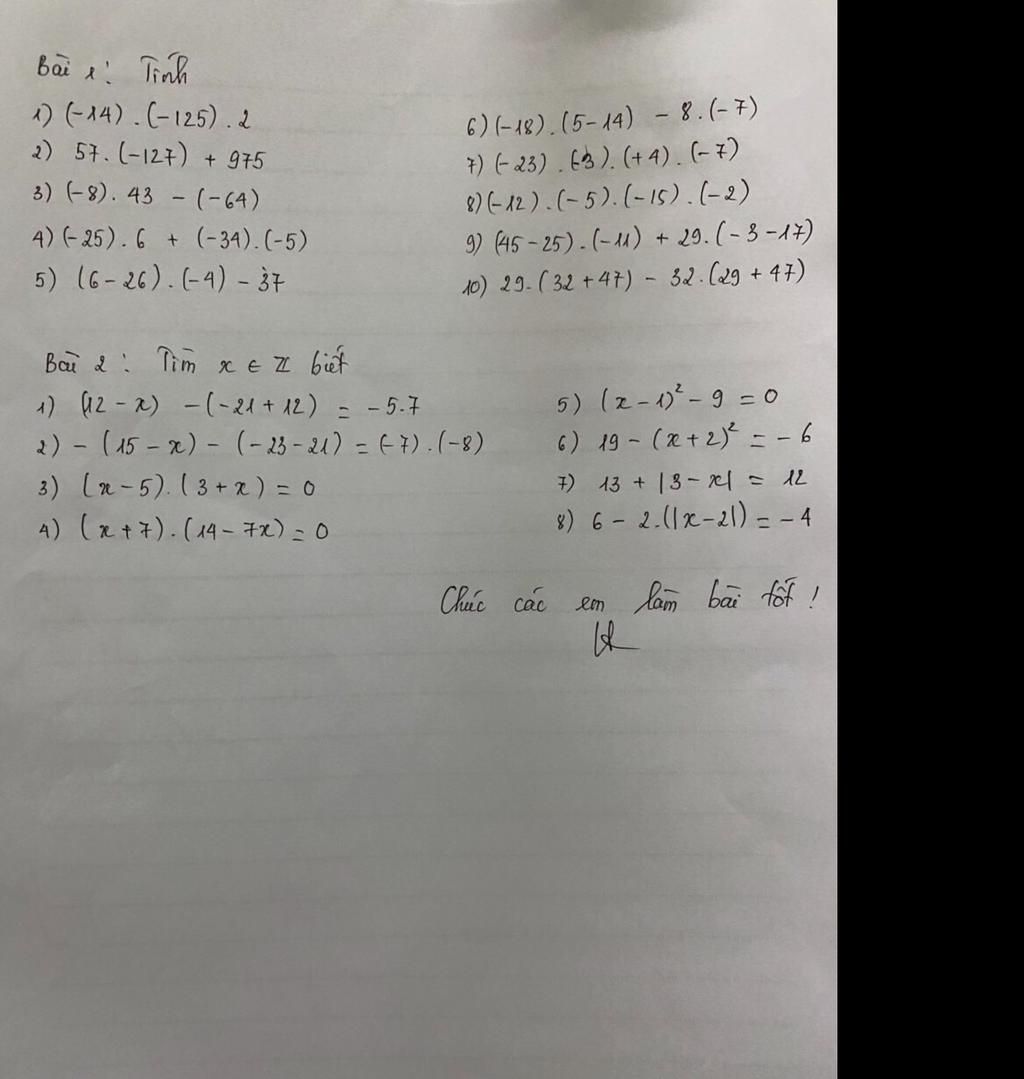 Bài 1: Tính
1) (-14) . (-125) . 2
2) 57. (-127) + 975
3) (-8). 43 - (-64)
4) (-25). 6 + (-34).(-5)
5) (6 - 26) . (-4) - 37
6) (-18). (5-14) - 8. (-7)
7) (-23) . (-3). (+4). (-7)
8) (-12) . (-5). (-15) . (-2)
9) (45 - 25) . (-11) + 29. (-3 -17)
10) 29. (32 + 47) - 32. (29 + 47)
Bài 2: Tìm x ∈ ℤ biết
1) (12 - x) - (-21 + 12) = -5.7
2) - (15 - x) - (-23 - 21) = (-7) . (-8)
3) (x - 5). (3 + x) = 0
4) (x + 7) . (14 - 7x) = 0
5) (x - 1)² - 9 = 0
6) 19 - (x + 2)² = - 6
7) 13 + |3 - x| = 12
8) 6 - 2.(|x - 2|) = - 4
Chúc các em làm bài tốt !